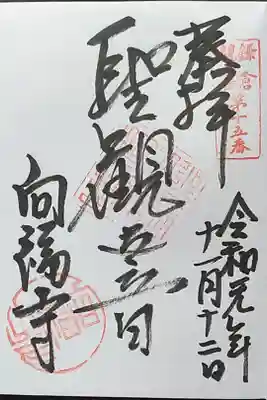 鎌倉第十五番
奉拝
令和元年
十一月十二日
聖觀世音
向福寺